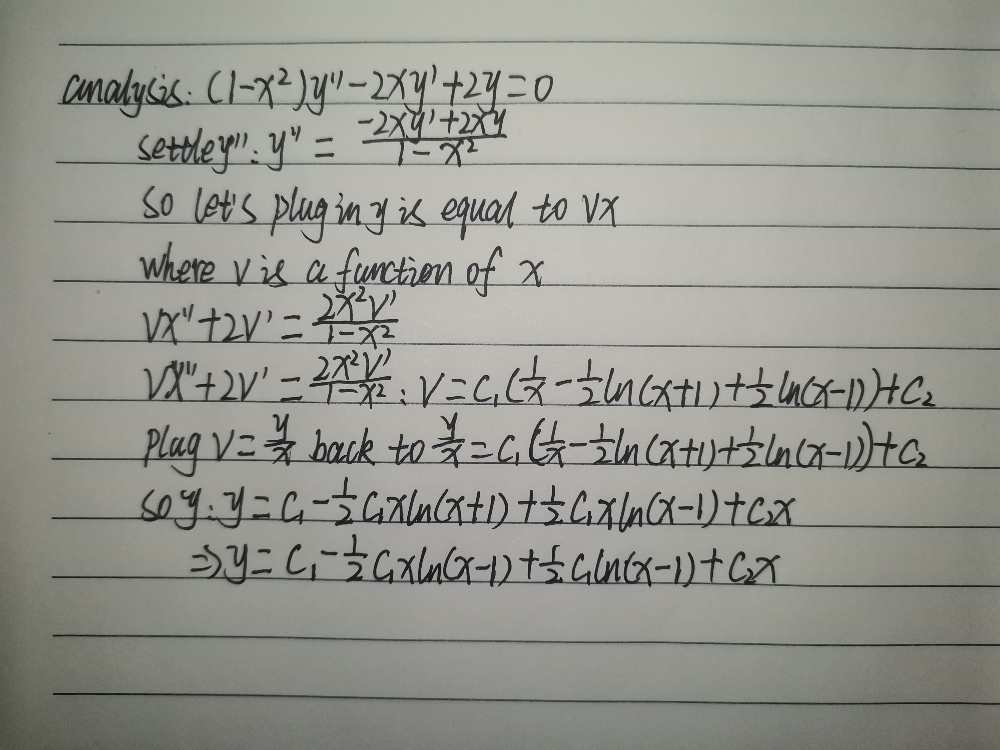 analysis: (1-x²)y''-2xy'+2y=0
settley'': y''= (-2xy'+2xy)/(1-x²)
so let's plug in y is equal to vx
where v is a function of x
vx''+2v'= (2x²v')/(1-x²)
vx''+2v'= (2x²v')/(1-x²): v=c₁(1/x-1/2ln(x+1)+1/2ln(x-1))+c₂
plag v=y/x back to y/x=c₁(1/x-1/2ln(x+1)+1/2ln(x-1))+c₂
so y: y=c₁-1/2c₁xln(x+1)+1/2c₁xln(x-1)+c₂x
⇒y=c₁-1/2c₁xln(x-1)+1/2c₁ln(x-1)+c₂x